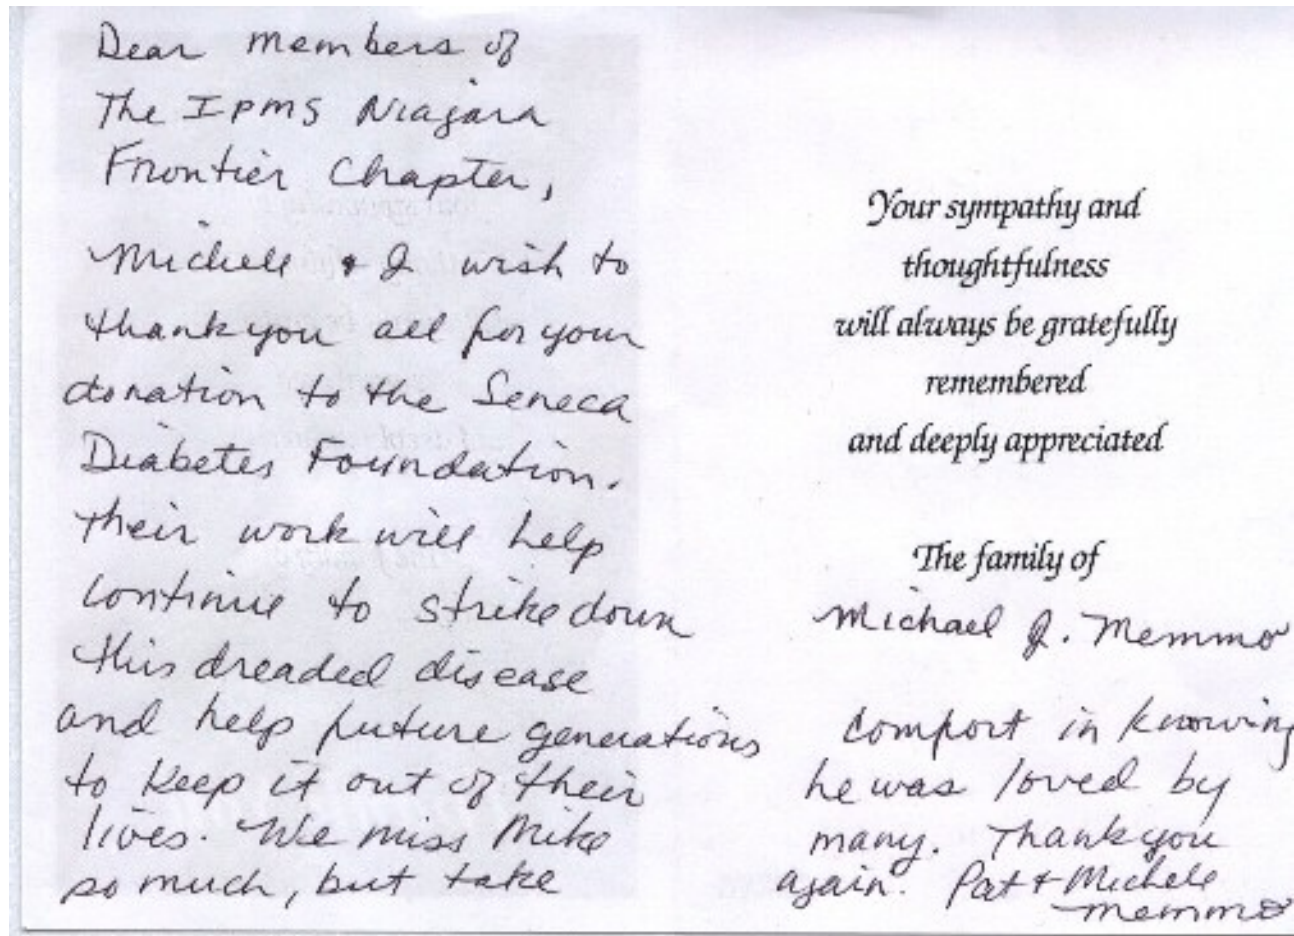 Dear members of
The IPMS Niagara
Frontier Chapter,
Michele & I wish to
thank you all for your
donation to the Seneca
Diabetes Foundation.
Their work will help
continue to strike down
this dreaded disease
and help future generations
to keep it out of their
lives. We miss Mike
so much, but take
Your sympathy and
thoughtfulness
will always be gratefully
remembered
and deeply appreciated
The family of
Michael J. Memmo
comfort in knowing
he was loved by
many. Thank you
again. Pat & Michele
Memmo